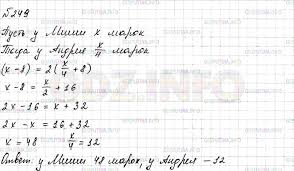 №249
Пусть у Миши x марок
Тогда у Андрея x/4 марок
(x-8) = 2(x/4 + 8)
x - 8 = x/2 + 16
2x - 16 = x + 32
2x - x = 16 + 32
x = 48 x/4 = 12
Ответ: у Миши 48 марок, у Андрея - 12